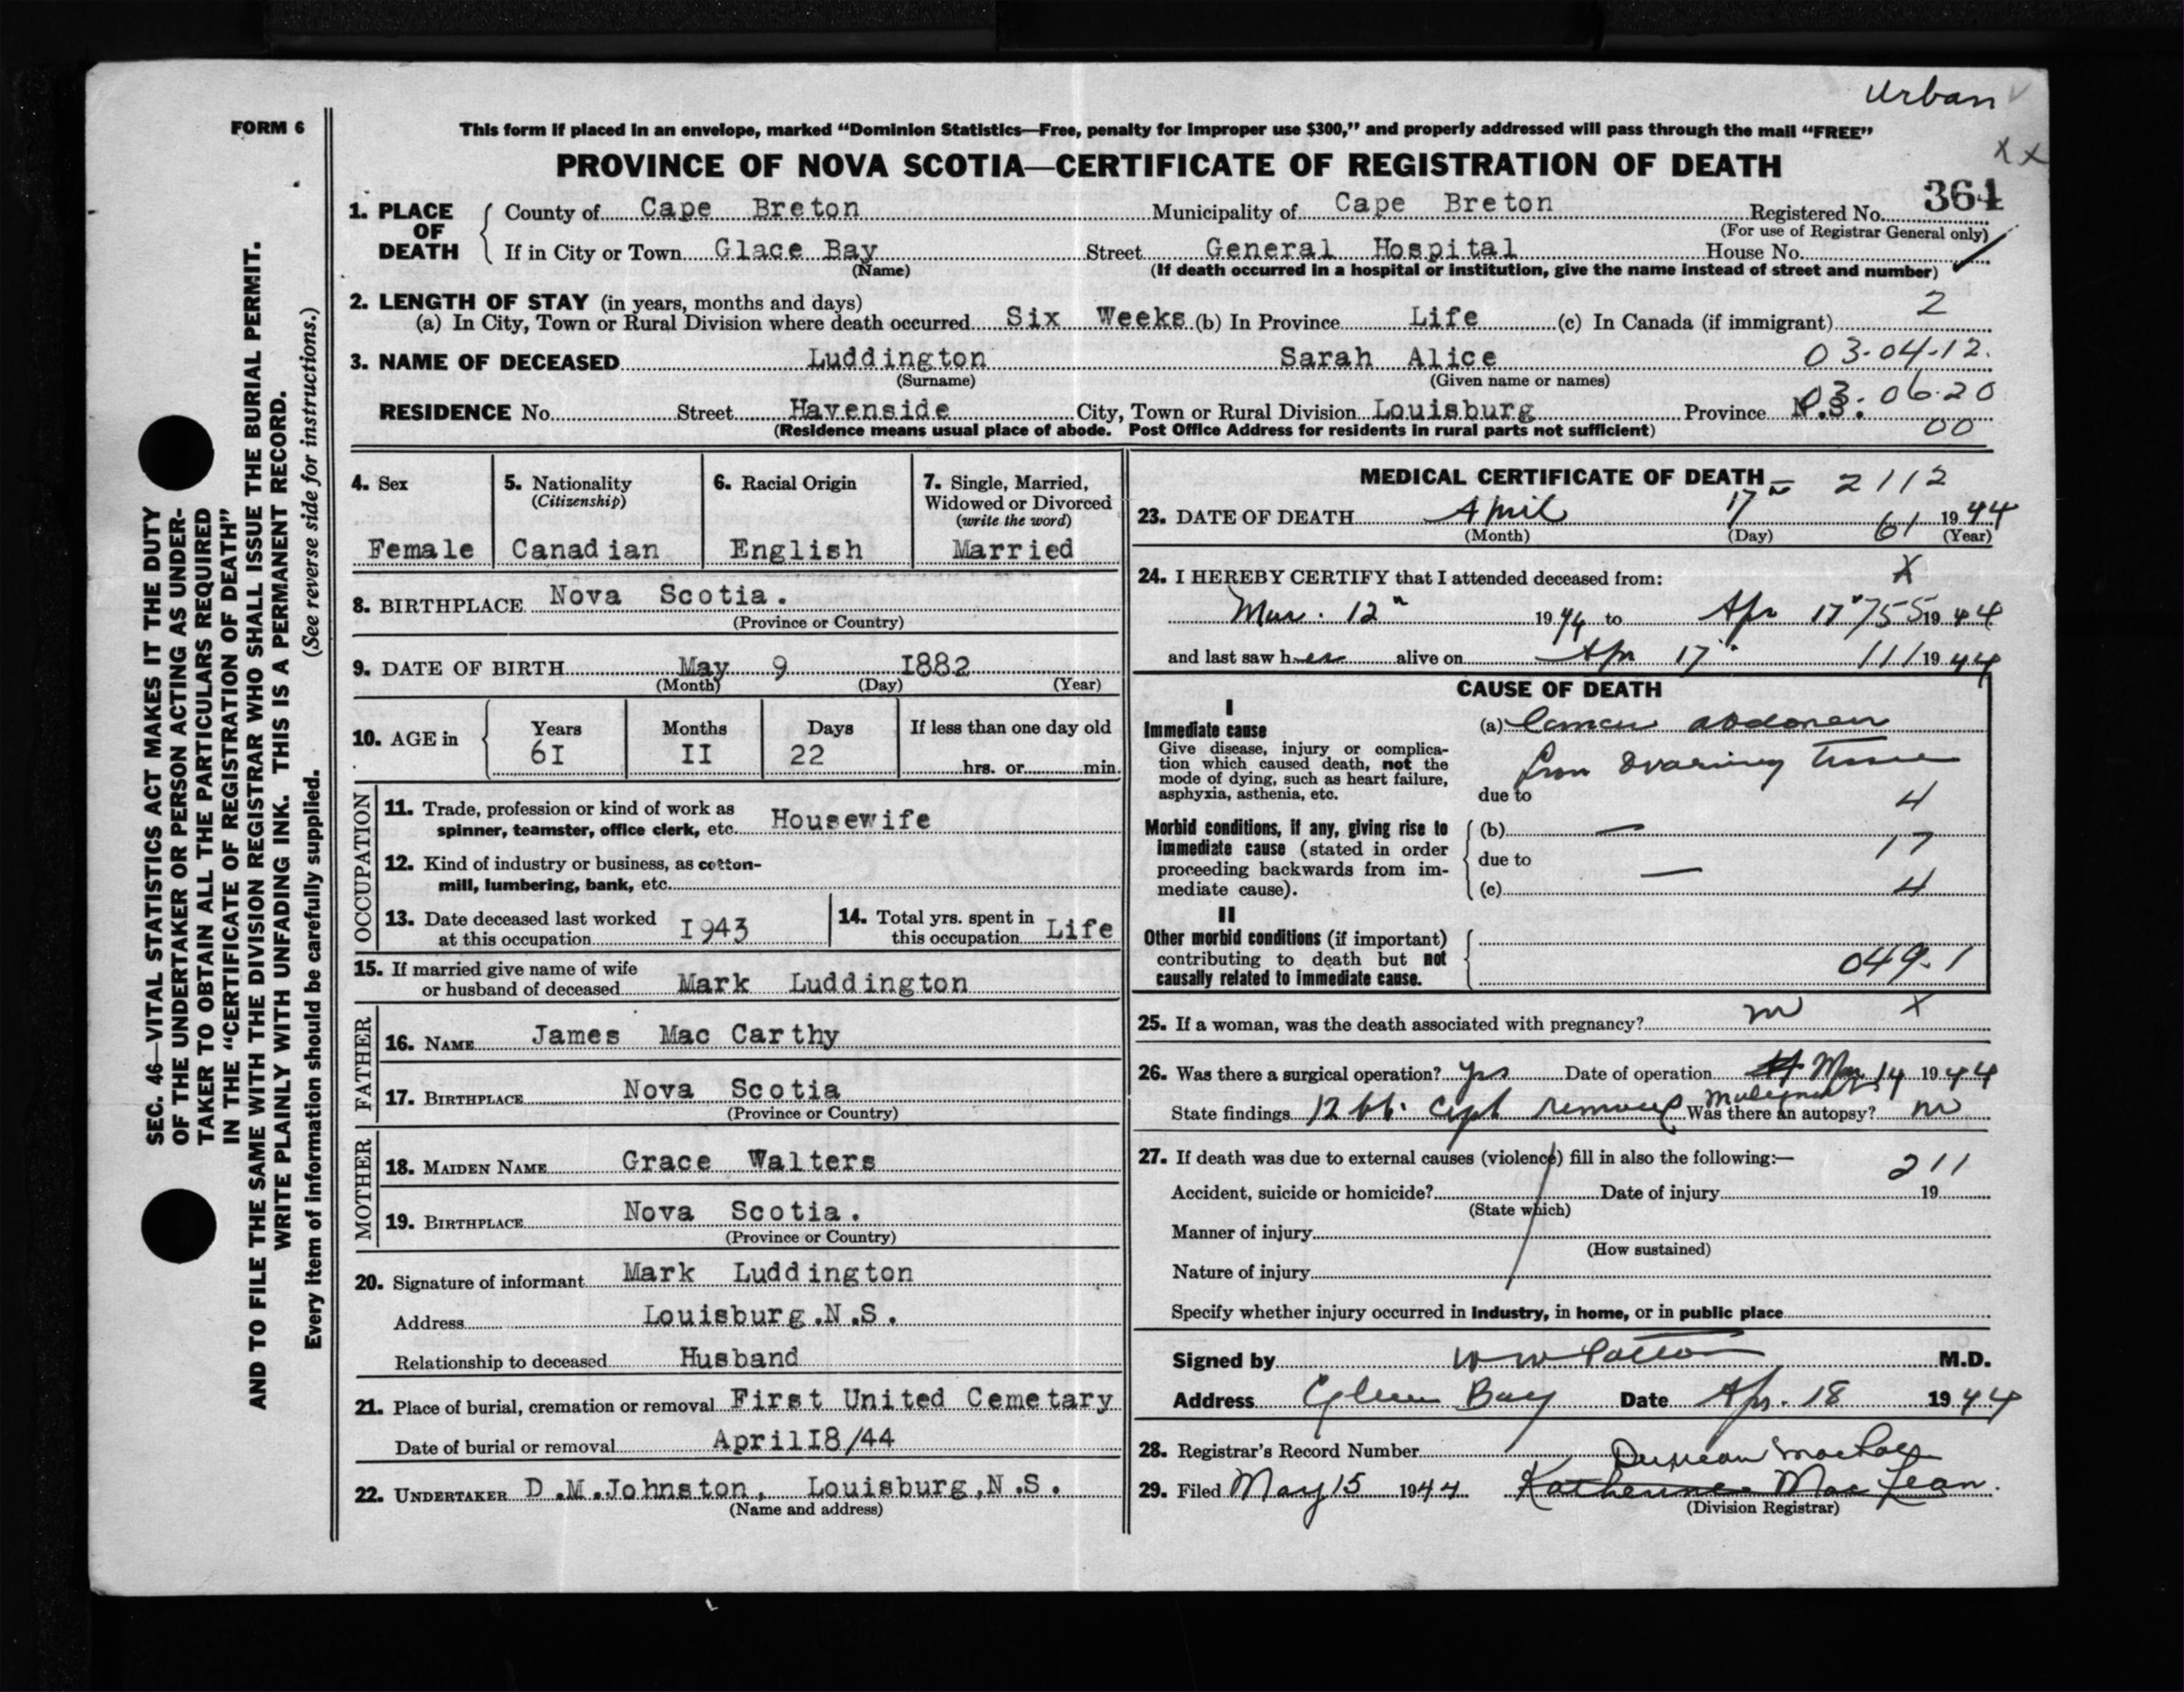 Urban
FORM 6
This form if placed in an envelope, marked "Dominion Statistics—Free, penalty for improper use $300," and properly addressed will pass through the mail "FREE"
PROVINCE OF NOVA SCOTIA—CERTIFICATE OF REGISTRATION OF DEATH
X X
364
1. PLACE OF DEATH County of Cape Breton Municipality of Cape Breton Registered No.
(For use of Registrar General only)
If in City or Town Glace Bay Street General Hospital House No.
(Name) (If death occurred in a hospital or institution, give the name instead of street and number)
2. LENGTH OF STAY (in years, months and days) 2
(a) In City, Town or Rural Division where death occurred Six Weeks (b) In Province Life (c) In Canada (if immigrant)
3. NAME OF DECEASED Luddington Sarah Alice 03-04-12.
(Surname) (Given name or names)
03-06-20
RESIDENCE No. Street Havenside City, Town or Rural Division Louisburg Province N.S.
(Residence means usual place of abode. Post Office Address for residents in rural parts not sufficient) 00
4. Sex 5. Nationality 6. Racial Origin 7. Single, Married,
(Citizenship) Widowed or Divorced
(write the word)
Female Canadian English Married
8. BIRTHPLACE Nova Scotia.
(Province or Country)
9. DATE OF BIRTH May 9 I882
(Month) (Day) (Year)
10. AGE in Years Months Days If less than one day old
6I II 22 hrs. or min.
OCCUPATION
11. Trade, profession or kind of work as
spinner, teamster, office clerk, etc. Housewife
12. Kind of industry or business, as cotton-
mill, lumbering, bank, etc.
13. Date deceased last worked
at this occupation I943
14. Total yrs. spent in
this occupation Life
15. If married give name of wife
or husband of deceased Mark Luddington
FATHER
16. NAME James Mac Carthy
17. BIRTHPLACE Nova Scotia
(Province or Country)
MOTHER
18. MAIDEN NAME Grace Walters
19. BIRTHPLACE Nova Scotia.
(Province or Country)
20. Signature of informant Mark Luddington
Address Louisburg.N.S.
Relationship to deceased Husband
21. Place of burial, cremation or removal First United Cemetary
Date of burial or removal AprilI8/44
22. UNDERTAKER D.M.Johnston, Louisburg,N.S.
(Name and address)
MEDICAL CERTIFICATE OF DEATH 2112
23. DATE OF DEATH April 17 61 1944
(Month) (Day) (Year)
24. I HEREBY CERTIFY that I attended deceased from: X
Mar. 12" 1944 to Apr 17" 755 1944
and last saw her alive on Apr 17" 111 1944
CAUSE OF DEATH
I
Immediate cause
Give disease, injury or complica-
tion which caused death, not the
mode of dying, such as heart failure,
asphyxia, asthenia, etc.
(a) Cancer abdomen
from ovarian tissue
due to 4
Morbid conditions, if any, giving rise to
immediate cause (stated in order
proceeding backwards from im-
mediate cause).
(b) — 17
due to
(c) — 4
II
Other morbid conditions (if important)
contributing to death but not
causally related to immediate cause.
049-1
25. If a woman, was the death associated with pregnancy? no X
26. Was there a surgical operation? yes Date of operation Mar 14 1944
State findings 12 lb. cyst removed malignant Was there an autopsy? no
27. If death was due to external causes (violence) fill in also the following:— 211
Accident, suicide or homicide? Date of injury 19
(State which)
Manner of injury
(How sustained)
Nature of injury
Specify whether injury occurred in industry, in home, or in public place
Signed by W W Patton M.D.
Address Glace Bay Date Apr. 18 1944
28. Registrar's Record Number
Duncan
29. Filed May 15 1944 Katherine MacLean.
(Division Registrar)
SEC. 46—VITAL STATISTICS ACT MAKES IT THE DUTY
OF THE UNDERTAKER OR PERSON ACTING AS UNDER-
TAKER TO OBTAIN ALL THE PARTICULARS REQUIRED
IN THE "CERTIFICATE OF REGISTRATION OF DEATH"
AND TO FILE THE SAME WITH THE DIVISION REGISTRAR WHO SHALL ISSUE THE BURIAL PERMIT.
WRITE PLAINLY WITH UNFADING INK. THIS IS A PERMANENT RECORD.
Every item of information should be carefully supplied. (See reverse side for instructions.)